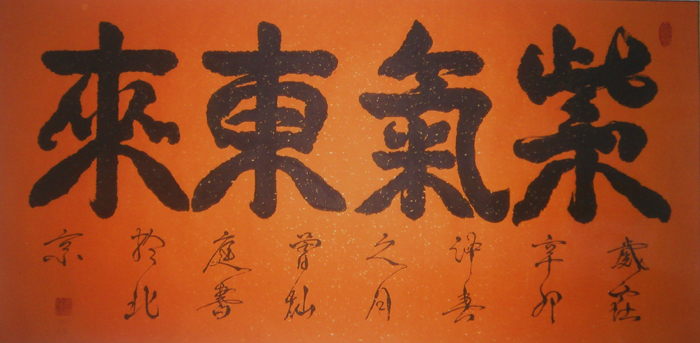 紫氣東來
歲在
辛卯
仲春
之月
曾灿
庭書
於北
京